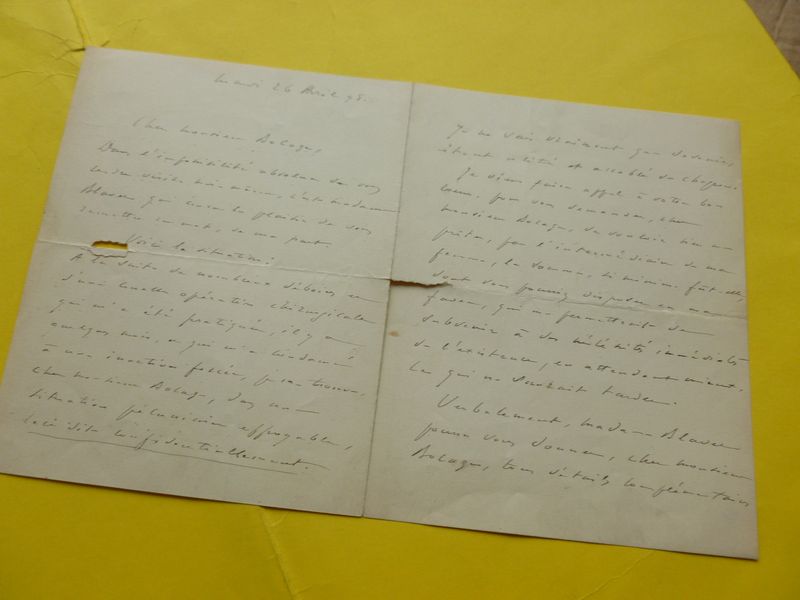 Mardi 26 Avril 98.
Cher monsieur Bologne,
Dans l'impossibilité absolue de vous
rendre visite moi-même, c'est madame
Blavet qui aura le plaisir de vous
remettre ce mot, de ma part.
Voici la situation :
A la suite de nombreux déboires, et
d'une cruelle opération chirurgicale
qui m'a été pratiquée, il y a
quelques mois, et qui m'a condamné
à une inaction forcée, je me trouve,
cher monsieur, dans une
situation pécuniaire effroyable,
ceci dit confidentiellement.
Je ne sais vraiment que devenir,
étant alité et accablé de chagrin.
Je viens faire appel à votre bon
cœur, pour vous demander, cher
monsieur, de vouloir bien me
prêter, par l'intermédiaire de ma
femme, la somme, si minime fût-elle,
dont vous pourriez disposer en ma
faveur, qui me permettrait de
subvenir à des nécessités immédiates
de l'existence, en attendant mieux.
Ce qui ne saurait tarder.
Verbalement, madame Blavet
pourra vous donner, cher monsieur
tous détails complémentaires